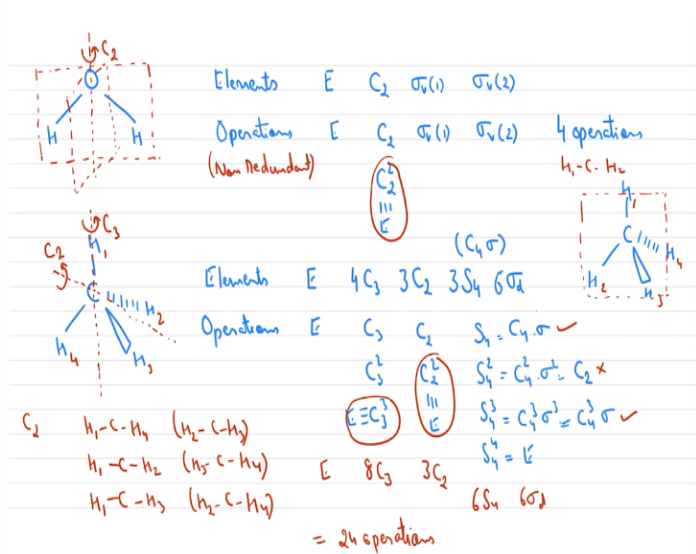 C₂
O
H H
Elements E C₂ σᵥ(1) σᵥ(2)
Operations E C₂ σᵥ(1) σᵥ(2) 4 operations
(Non Redundant) C₂² H₁-C-H₂
≡
E
H₁
C
H₂ H₃ H₄
C₃
C₂ H₁
C H₂
H₄ H₃
(C₄σ)
Elements E 4C₃ 3C₂ 3S₄ 6σd
Operations E C₃ C₂ S₄ = C₄.σ ✓
C₃² C₂² S₄² = C₄².σ² = C₂ ×
≡
E≡C₃³ E S₄³ = C₄³σ³ = C₄³σ ✓
S₄⁴ = E
C₂ H₁-C-H₄ (H₂-C-H₃)
H₁-C-H₂ (H₃-C-H₄) E 8C₃ 3C₂
H₁-C-H₃ (H₂-C-H₄) 6S₄ 6σd
= 24 operations